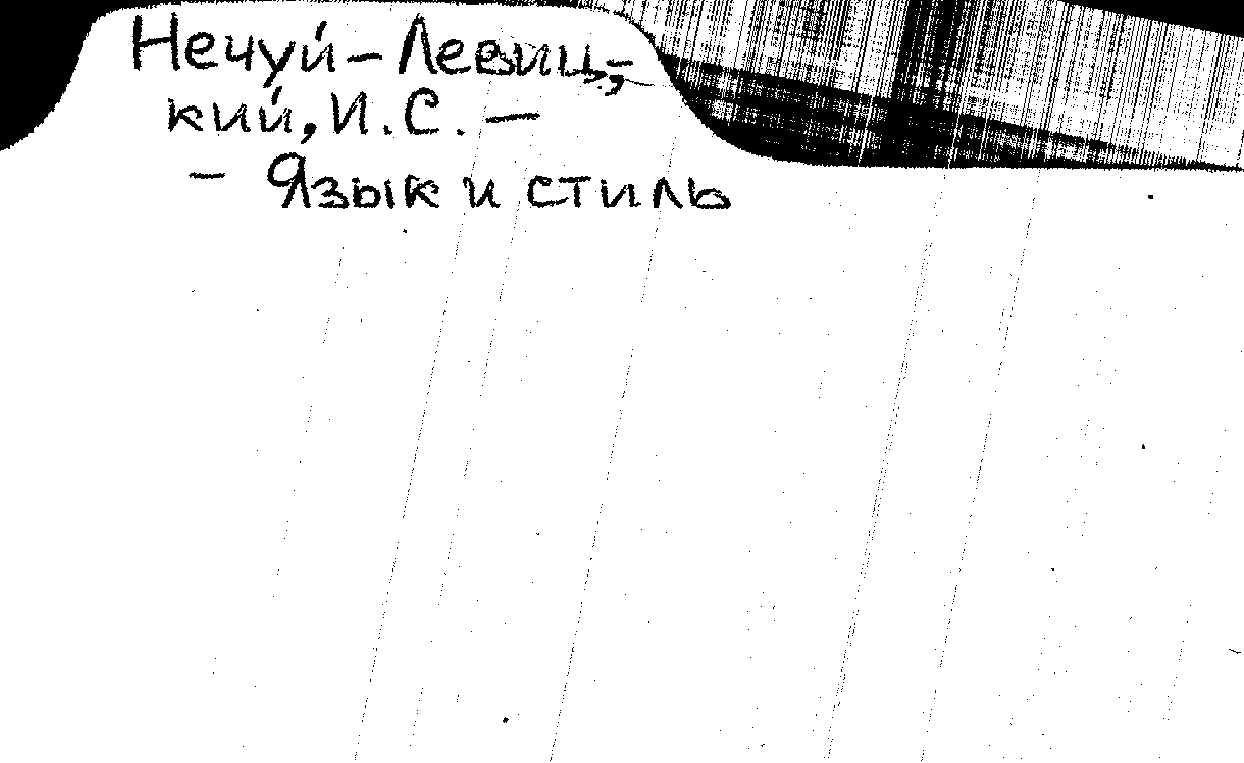 Нечуй-Левиц-
кий, И.С. —
- Язык и стиль